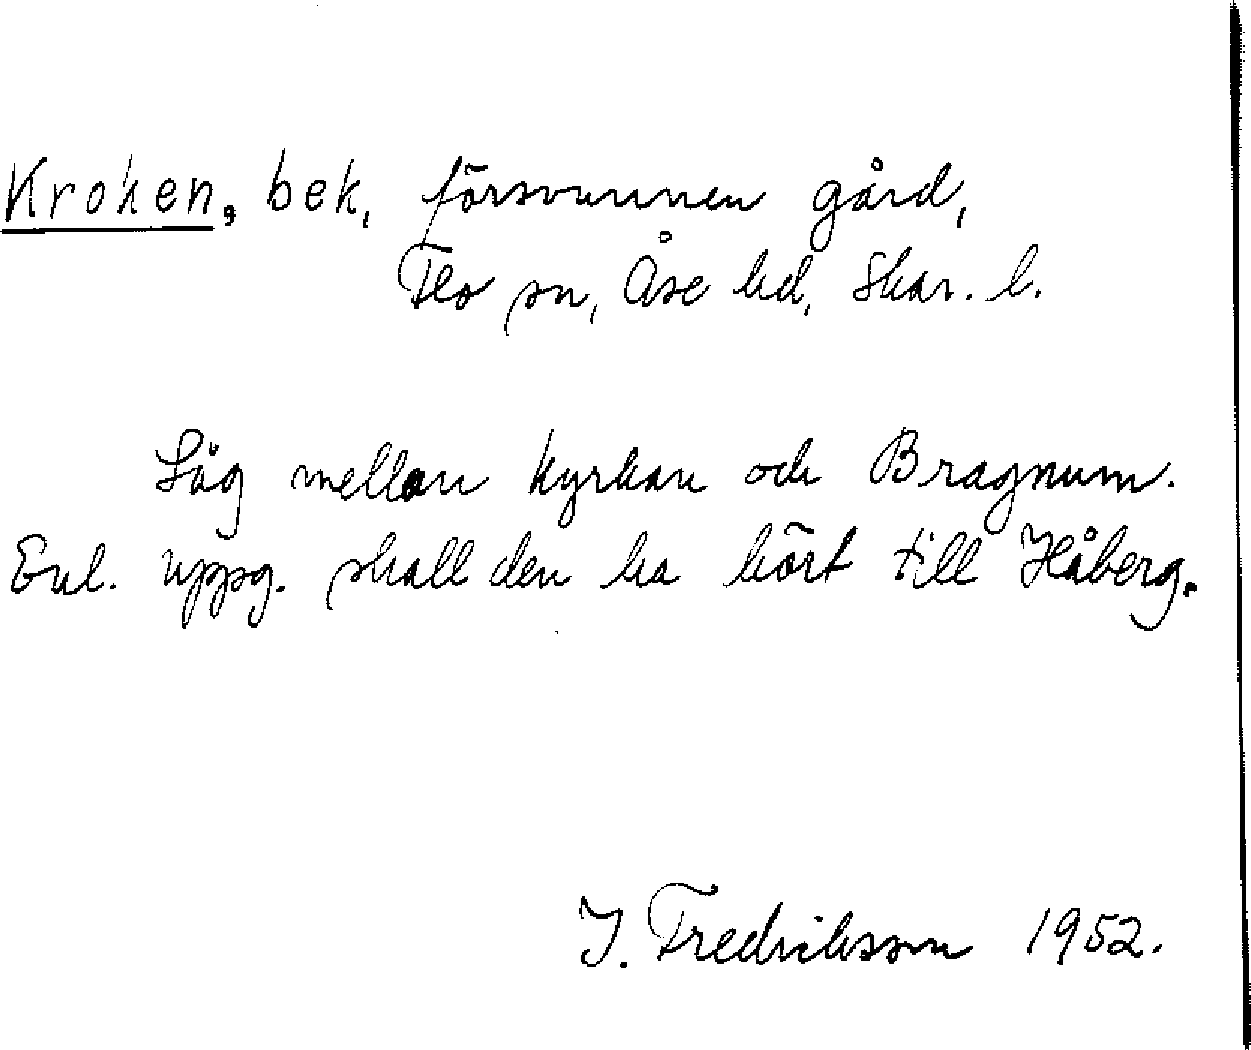 Kroken, bek, försvunnen gård,
Flo sn, Åse hd, Skar. l.
Låg mellan kyrkan och Bragnum.
Enl. uppg. skall den ha hört till Håberg.
J. Fredriksson 1952.